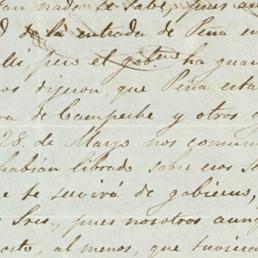 nada se sabe, pues au
d de la entrada de Peña en
lli, pero el gobno ha guar
os dijeron que Peña esta
va de Campeche y otros
28. de Marzo nos comuni
habían librado sobre esos S
e servirá de gobierno,
Sres., pues nosotros aunq
al menos, que tuviera